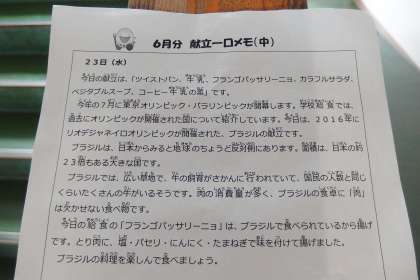 6月分 献立一口メモ(中)
23日(水)
今日の献立は、「ツイストパン、牛乳、フランゴパッサリーニョ、カラフルサラダ、
ベジタブルスープ、コーヒー牛乳の素」です。
今年の7月に東京オリンピック・パラリンピックが開幕します。学校給食では、
過去にオリンピックが開催された国について紹介しています。今日は、2016年に
リオデジャネイロオリンピックが開催された、ブラジルの献立です。
ブラジルは、日本からみると地球のちょうど反対側にあります。面積は、日本の約
23倍もある大きな国です。
ブラジルでは、広い草地で、牛の飼育がさかんに行われていて、国民の人数と同じ
くらいたくさんの牛がいるそうです。肉の消費量が多く、ブラジルの食卓に「肉」
は欠かせない食べ物です。
今日の給食の「フランゴパッサリーニョ」は、ブラジルで食べられているから揚げ
です。とり肉に、塩・パセリ・にんにく・たまねぎで味を付けて揚げました。
ブラジルの料理を楽しんで食べましょう。